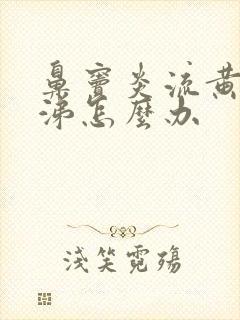 鼻窦炎流黄
涕怎麼办
浅笑霓殇